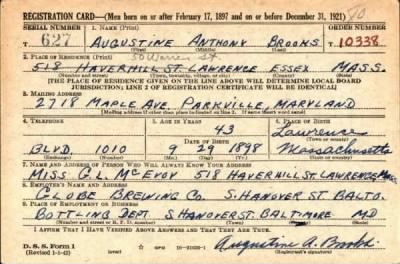 REGISTRATION CARD—(Men born on or after February 17, 1897 and on or before December 31, 1921)
SERIAL NUMBER 1. NAME (Print) ORDER NUMBER
T 627 AUGUSTINE ANTHONY BROOKS T 10338
(First) (Middle) (Last)
2. PLACE OF RESIDENCE (Print)
518 HAVERHILL ST. LAWRENCE ESSEX MASS.
(Number and street) (Town, township, village, or city) (County) (State)
[THE PLACE OF RESIDENCE GIVEN ON THE LINE ABOVE WILL DETERMINE LOCAL BOARD
JURISDICTION; LINE 2 OF REGISTRATION CERTIFICATE WILL BE IDENTICAL]
3. MAILING ADDRESS
2718 MAPLE AVE. PARKVILLE, MARYLAND
[Mailing address if other than place indicated on line 2. If same insert word same]
4. TELEPHONE 5. AGE IN YEARS 6. PLACE OF BIRTH
43 Lawrence
DATE OF BIRTH
BLVD. 1010 9 29 1898 Massachusetts
(Exchange) (Number) (Mo.) (Day) (Yr.) (State or country)
7. NAME AND ADDRESS OF PERSON WHO WILL ALWAYS KNOW YOUR ADDRESS
MISS G.L. MCEVOY 518 HAVERHILL ST. LAWRENCE MASS
8. EMPLOYER'S NAME AND ADDRESS
GLOBE BREWING CO. S. HANOVER ST BALTO.
9. PLACE OF EMPLOYMENT OR BUSINESS
BOTTLING DEPT. S HANOVER ST. BALTIMORE MD
(Number and street or R. F. D. number) (Town) (County) (State)
I AFFIRM THAT I HAVE VERIFIED ABOVE ANSWERS AND THAT THEY ARE TRUE.
D. S. S. Form 1
(Revised 1-1-42) (over) Augustine A. Brooks
(Registrant's signature)